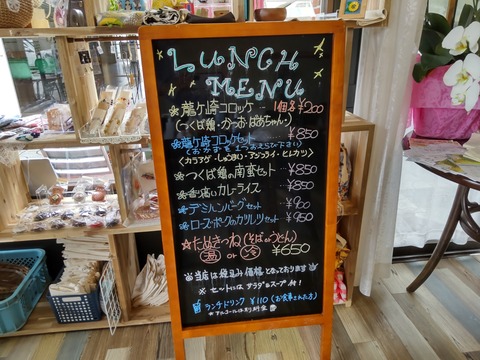 LUNCH
MENU
龍ヶ崎コロッケ… 1個 ¥200
(つくば鶏・かつお・ばあちゃん・)
龍ヶ崎コロッケセット… ¥850
(おかずを1つおえらび下さい)
〈カラアゲ・しゅうまい・アジフライ・ヒレカツ〉
つくば鶏の南蛮セット… ¥850
カレーライス ¥850
デミハンバーグセット ¥900
ローズポークのカツレツセット… ¥950
たぬきつね(そばorうどん)
(温) or (冷) ¥650
※当店は税込み価格となっております※
※セットにはサラダ&スープ付!
ランチドリンク ¥110 (お食事された方)
※アルコールは別料金